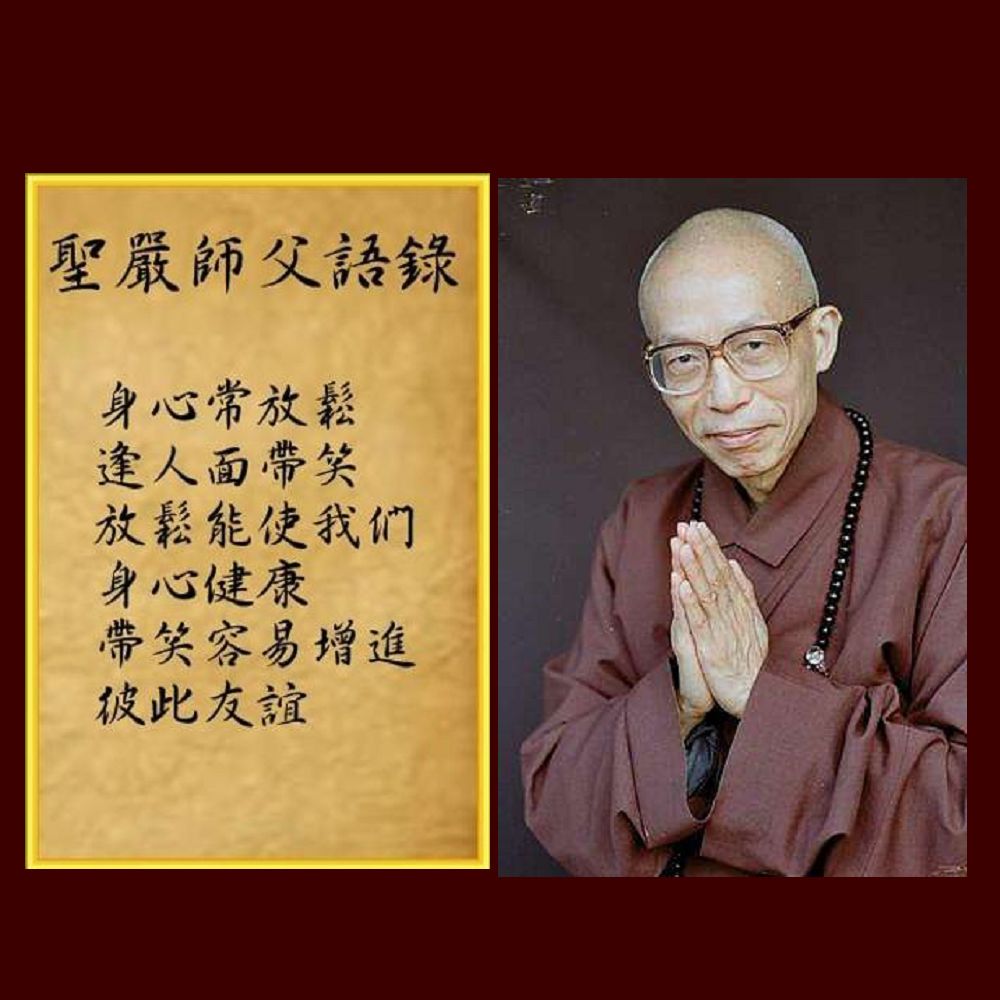 聖嚴師父語錄
身心常放鬆
逢人面帶笑
放鬆能使我們
身心健康
帶笑容易增進
彼此友誼